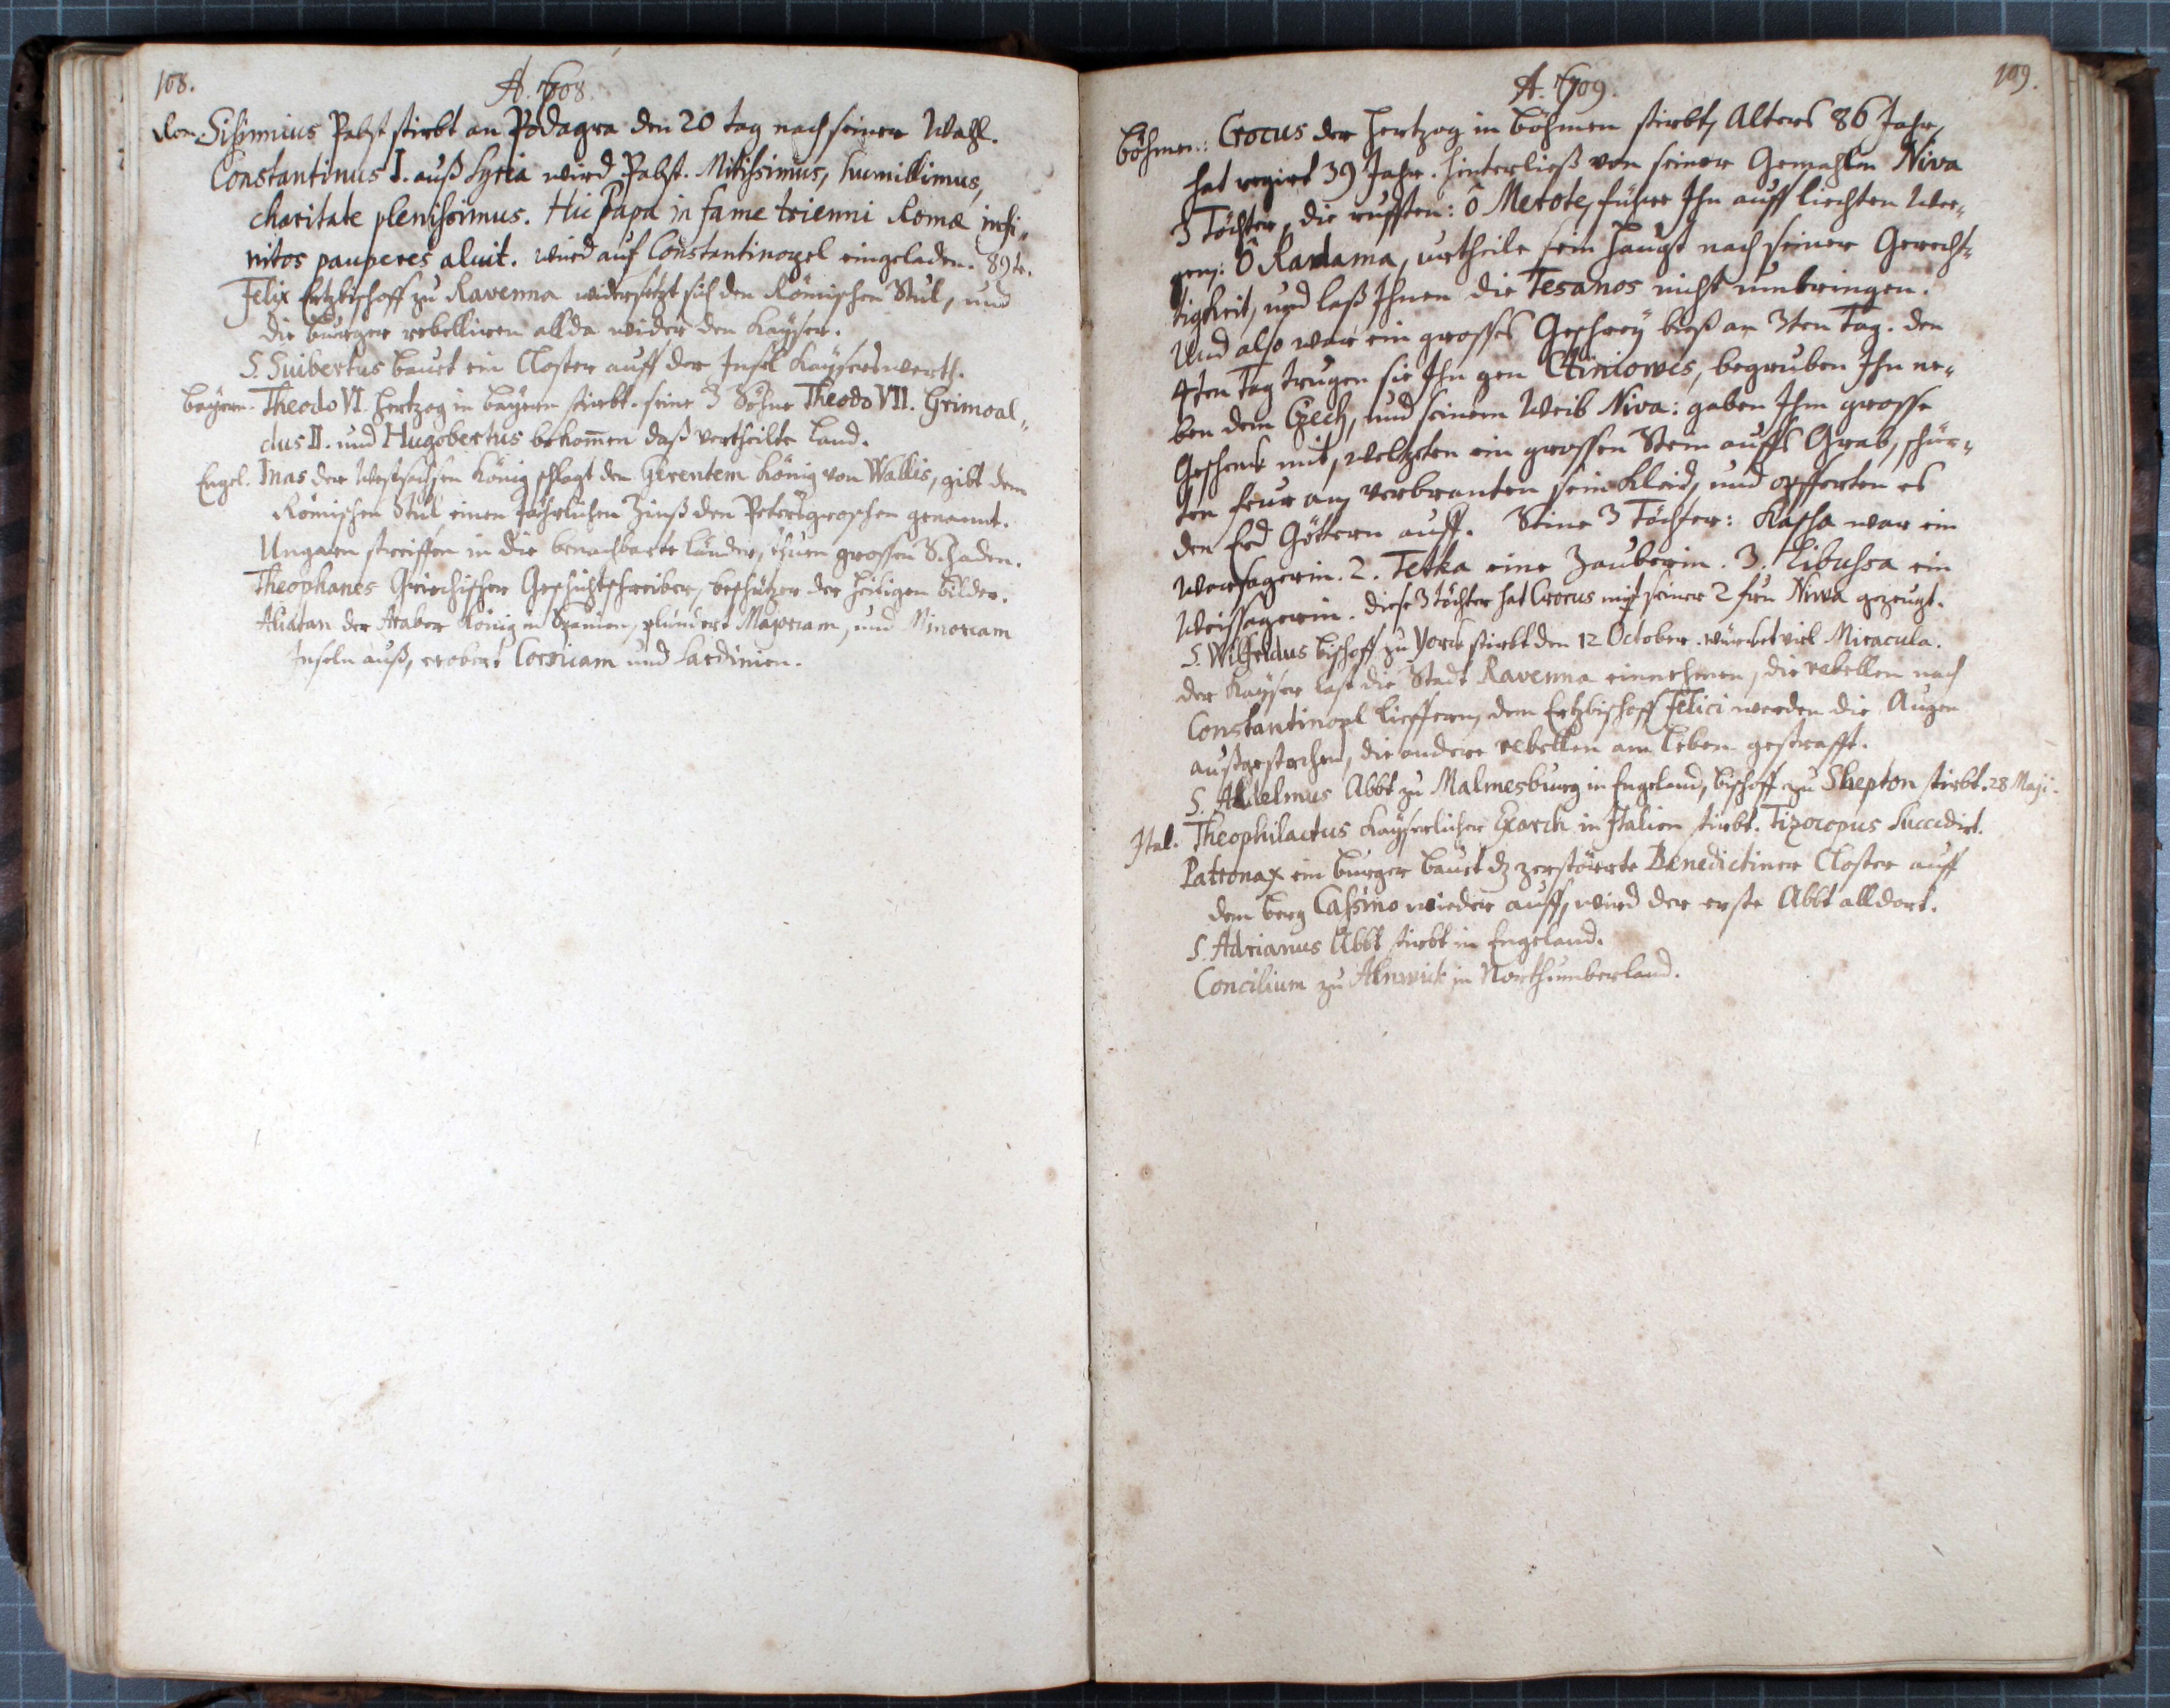 108.
A. 708.
Rom. Sisinnius Pabst stirbt an Podagra den 20 tag nach seiner Wahl.
Constantinus I. auß Syria wird Pabst. Mitissimus, humillimus,
charitate plenissimus. Hic Papa in fame trienni Romæ infi„
nitos pauperes aluit. wird auf Constantinopel eingeladen. 89te.
Felix Ertzbischoff zu Ravenna widersetzt sich den Römischen Stul, und
die burger rebelliren allda wider den Kayser.
S. Suibertus bauet ein Closter auff der Insel Kayserswerth.
Bayern. Theodo VI. Hertzog in Bayern stirbt. seine 3 Söhne Theodo VII. Grimoal„
dus II. und Hugobertus bekommen daß vertheilte Land.
Engel. Inas der Westsachsen König schlagt den Gerentem König von Wallis, gibt dem
Römischen Stul einen Jährlichen Zinß den Petersgroschen genannt.
Ungarn streiffen in die benachbarte Länder, thuen grossen Schaden.
Theophanes Griechischer Geschichtschreiber, beschützer der Heiligen Bilder.
Aliatan der Araber König in Spanien, plündert Majoricam, und Minoricam
Inseln auß, erobert Corsicam und Sardinien.
109.
A. 709.
Böhmen: Crocus der Hertzog in Böhmen stirbt, Alters 86 Jahr,
hat regirt 39 Jahr. hinterließ von seiner Gemahlin Niva
3 Töchter, die rufften: ô Merote, führe Ihn auff liechten We„
gen: Ô Radama, urtheile sein Haupt nach seiner Gerech„
tigkeit, und laß Ihnen die Tesanos nicht umbringen.
Und also war ein grosses Geschrey biß an 3ten Tag. den
4ten Tag trugen sie Ihn gen Ctiniowes, begruben Ihn ne„
ben dem Czech, und seinem Weib Niva: gaben Ihm grosse
Geschenck mit, weltzten ein grossen Stein auffs Grab, schür„
ten feur an, verbranten sein Kleid, und opfferten es
den Erd Göttern auff. Seine 3 Töchter: Kascha war ein
Warsagerin. 2. Tetka eine Zauberin. 3. Libussa ein
Weissagerin. diese 3 töchter hat Crocus mit seiner 2 frau Niwa gezeugt.
S. Wilfridus bischoff zu Yorck stirbt den 12 October. würcket viel Miracula.
der Kayser last die Stadt Ravenna einnehmen, die rebellen nach
Constantinopl lieffern, dem Ertzbischoff Felici werden die Augen
außgestochen, die andere rebellen am Leben gestrafft.
S. Aldelmus Abbt zu Malmesburg in Engeland, bischoff zu Shepton stirbt. 28 Maji.
Ital. Theophilactus Kayserlicher Exarch in Italien stirbt. Tizocopus succedirt.
Patronax ein burger bauet dz zerstörrte Benedictiner Closter auff
dem berg Cassino wieder auff, wird der erste Abbt alldort.
S. Adrianus Abbt stirbt in Engeland.
Concilium zu Alnwick in Northumberland.